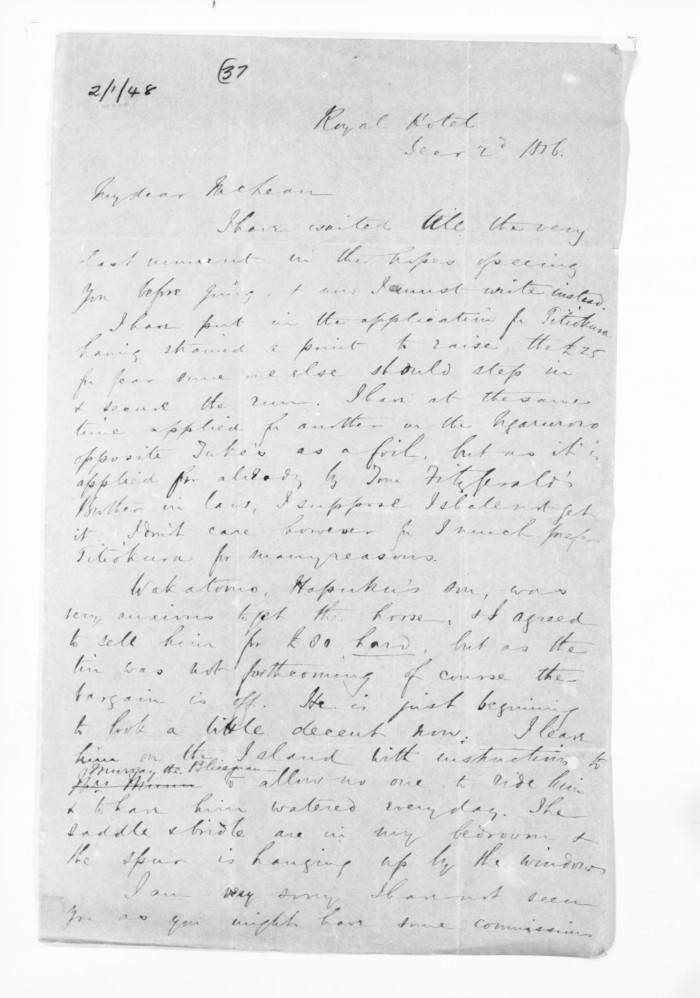 2/1/48
37
Royal Hotel
Decr 2d 1856.
My dear McLean
I have waited till the very
last moment in the hopes of seeing
you before going, & now I must write instead.
I have put in the application for Titiokura
having strained a point to raise the £25
for fear some one else should step in
& secure the run. I have at the same
time applied for another on the Ngaruroro
opposite Tuke's as a foil, but as it is
applied for already by Tom Fitzgerald's
Brother in law, I suppose I shall not get
it. I don't care however for I much prefer
Titiokura for many reasons.
Wakatomo, Hapuku's son, was
very anxious to get the horse, & I agreed
to sell him for £80 hard, but as the
tin was not forthcoming of course the
bargain is off. He is just beginning
to look a little decent now. I leave
him on the Island with instructions to
Murray the Policeman
Mrs to allow no one to ride him
& to have him watered every day. The
saddle & bridle are in my bedroom &
the spur is hanging up by the window
I am very sorry I have not seen
you as you might have some commissions